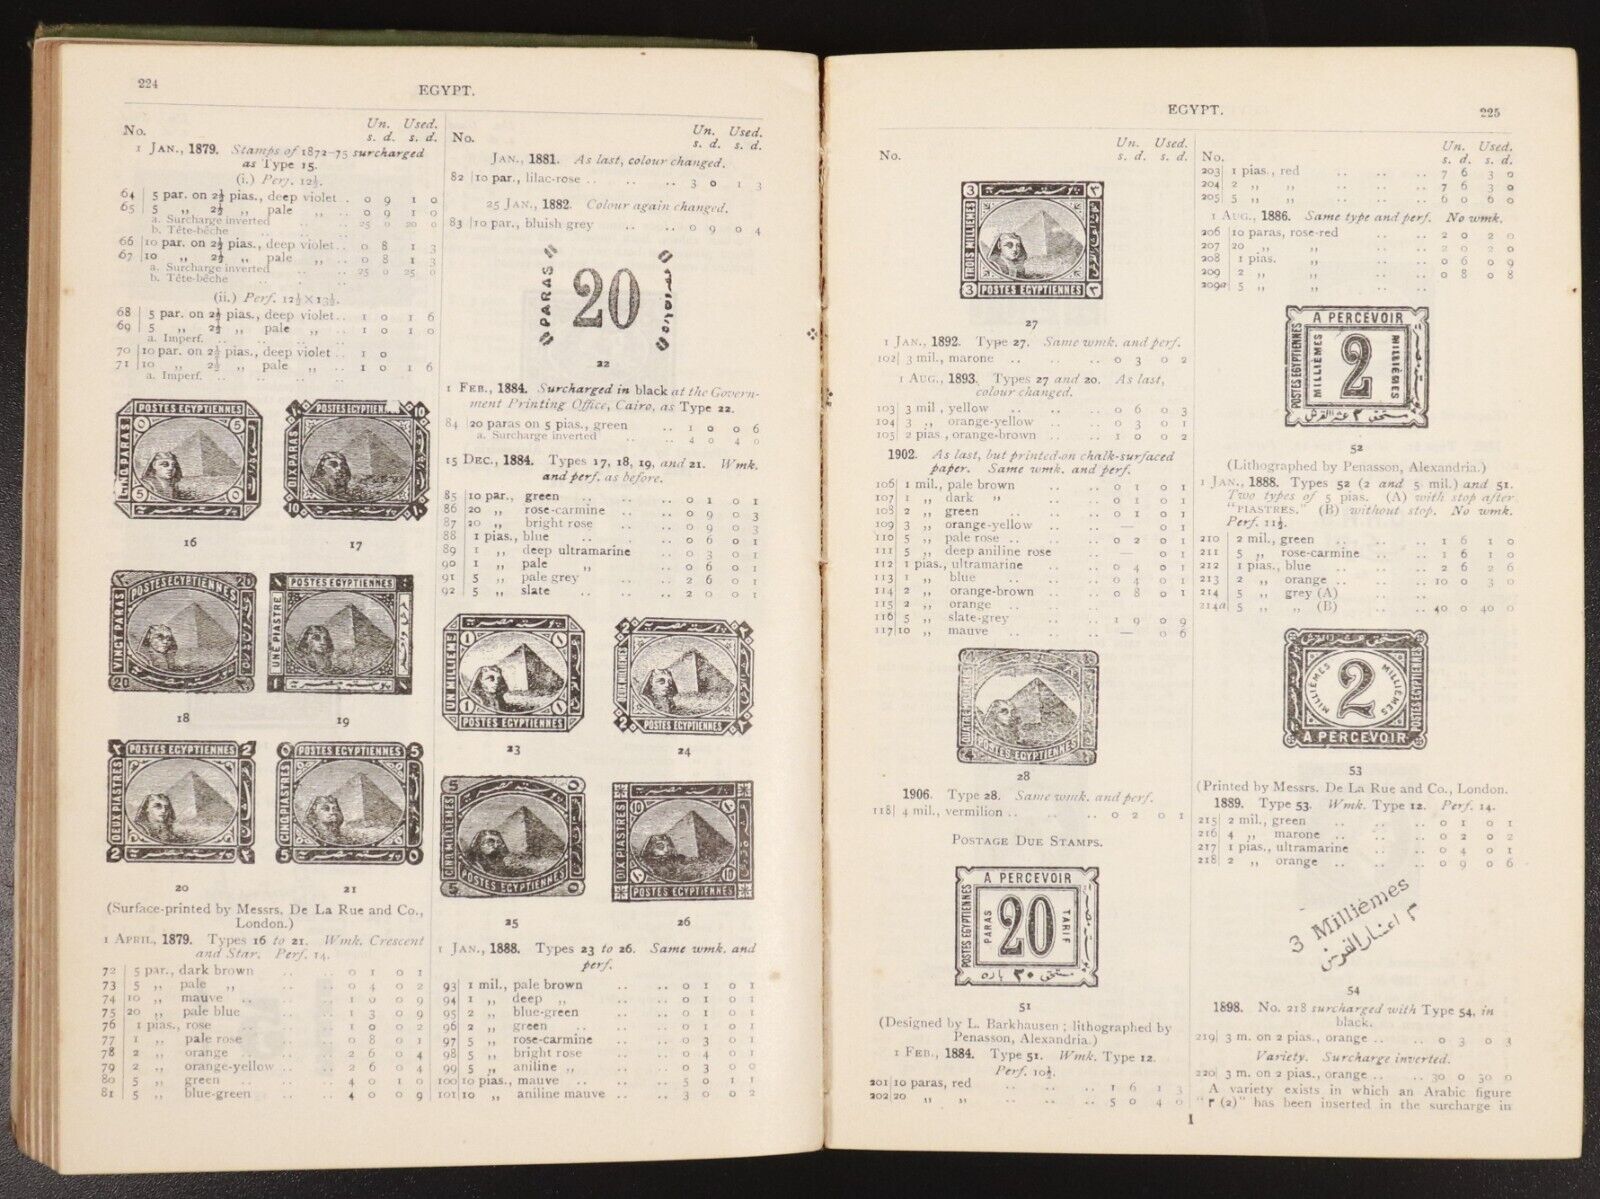 224
EGYPT.
No. Un. Used.
s. d. s. d.
1 JAN., 1879. Stamps of 1872–75 surcharged
as Type 15.
(i.) Perf. 12½.
64 5 par. on 2½ pias., deep violet .. 0 9 1 0
65 5 ,, 2½ ,, pale ,, .. 0 9 1 0
a. Surcharge inverted .. .. 25 0 20 0
b. Tête-bêche .. .. ..
66 10 par. on 2½ pias., deep violet .. 0 8 1 3
67 10 ,, 2½ ,, pale ,, .. 0 8 1 3
a. Surcharge inverted .. .. 25 0 25 0
b. Tête-bêche
(ii.) Perf. 12½×13½.
68 5 par. on 2½ pias., deep violet .. 1 0 1 6
69 5 ,, 2½ ,, pale ,, .. 1 0 1 0
a. Imperf. .. .. .. ..
70 10 par. on 2½ pias., deep violet .. 1 0
71 10 ,, 2½ ,, pale ,, .. 1 0 1 6
a. Imperf. .. .. .. ..
POSTES EGYPTIENNES
CINQ PARAS
5 5
POSTES EGYPTIENNES
DIX PARAS
10 10
16 17
POSTES EGYPTIENNES
VINGT PARAS
20 20
POSTES EGYPTIENNES
UNE PIASTRE
18 19
POSTES EGYPTIENNES
DEUX PIASTRES
2 2
POSTES EGYPTIENNES
CINQ PIASTRES
5 5
20 21
(Surface-printed by Messrs. De La Rue and Co.,
London.)
1 APRIL, 1879. Types 16 to 21. Wmk. Crescent
and Star. Perf. 14.
72 5 par., dark brown .. .. 0 1 0 1
73 5 ,, pale ,, .. .. 0 4 0 2
74 10 ,, mauve .. .. .. 1 0 0 9
75 20 ,, pale blue .. .. 1 3 0 9
76 1 pias., rose .. .. .. 1 0 0 2
77 1 ,, pale rose .. .. 0 8 0 1
78 2 ,, orange .. .. .. 2 6 0 4
79 2 ,, orange-yellow .. .. 2 6 0 4
80 5 ,, green .. .. .. 4 0 1 0
81 5 ,, blue-green .. .. 4 0 0 9
No. Un. Used.
s. d. s. d.
JAN., 1881. As last, colour changed.
82 10 par., lilac-rose .. .. .. 3 0 1 3
25 JAN., 1882. Colour again changed.
83 10 par., bluish grey .. .. 0 9 0 4
PARAS
20
22
1 FEB., 1884. Surcharged in black at the Govern-
ment Printing Office, Cairo, as Type 22.
84 20 paras on 5 pias., green .. 1 0 0 6
a. Surcharge inverted .. .. 4 0 4 0
15 DEC., 1884. Types 17, 18, 19, and 21. Wmk.
and perf. as before.
85 10 par., green .. .. .. 0 1 0 1
86 20 ,, rose-carmine .. .. 0 9 0 3
87 20 ,, bright rose .. .. 0 9 0 3
88 1 pias., blue .. .. .. 0 6 0 1
89 1 ,, deep ultramarine .. 0 3 0 1
90 1 ,, pale ,, .. 0 6 0 1
91 5 ,, pale grey .. .. 2 6 0 1
92 5 ,, slate .. .. .. 2 0 0 1
UN MILLIEME
1 1
POSTES EGYPTIENNES
DEUX MILLIEMES
2 2
POSTES EGYPTIENNES
23 24
CINQ MILLIEMES
5 5
POSTES EGYPTIENNES
DIX PIASTRES
10 10
POSTES EGYPTIENNES
25 26
1 JAN., 1888. Types 23 to 26. Same wmk. and
perf.
93 1 mil., pale brown .. .. 0 1 0 1
94 1 ,, deep ,, .. .. 0 1 0 1
95 2 ,, blue-green .. .. 0 1 0 1
96 2 ,, green .. .. .. 0 1 0 1
97 5 ,, rose-carmine .. .. 0 3 0 1
98 5 ,, bright rose .. .. 0 4 0 1
99 5 ,, aniline ,, .. .. 0 3 0 0
100 10 pias., mauve .. .. .. 5 0 1 1
101 10 ,, aniline mauve .. .. 3 0 0 2
EGYPT.
225
No. Un. Used.
s. d. s. d.
3 ٣
TROIS MILLIÈMES
3 POSTES EGYPTIENNES ٣
27
1 JAN., 1892. Type 27. Same wmk. and perf.
102 3 mil., marone .. .. .. 0 3 0 2
1 AUG., 1893. Types 27 and 20. As last,
colour changed.
103 3 mil., yellow .. .. .. 0 6 0 3
104 3 ,, orange-yellow .. .. 0 3 0 1
105 2 pias., orange-brown .. .. 1 0 0 2
1902. As last, but printed on chalk-surfaced
paper. Same wmk. and perf.
106 1 mil., pale brown .. .. 0 1 0 1
107 1 ,, dark ,, .. .. 0 1 0 1
108 2 ,, green .. .. .. 0 1 0 1
109 3 ,, orange-yellow .. .. — 0 1
110 5 ,, pale rose .. .. .. 0 2 0 1
111 5 ,, deep aniline rose .. — 0 1
112 1 pias., ultramarine .. .. 0 4 0 1
113 1 ,, blue .. .. .. 0 4 0 1
114 2 ,, orange-brown .. .. 0 8 0 1
115 2 ,, orange .. .. ..
116 5 ,, slate-grey .. .. 1 9 0 9
117 10 ,, mauve .. .. .. — 0 6
POSTES EGYPTIENNES
28
1906. Type 28. Same wmk. and perf.
118 4 mil., vermilion .. .. .. 0 2 0 1
POSTAGE DUE STAMPS.
A PERCEVOIR
POSTES EGYPTIENNES
PARAS
20
TARIF
51
(Designed by L. Barkhausen ; lithographed by
Penasson, Alexandria.)
1 FEB., 1884. Type 51. Wmk. Type 12.
Perf. 10½.
201 10 paras, red .. .. .. 1 6 1 3
202 20 ,, ,, .. .. .. 5 0 4 0
No. Un. Used.
s. d. s. d.
203 1 pias., red .. .. .. 7 6 3 0
204 2 ,, ,, .. .. .. 7 6 3 0
205 5 ,, ,, .. .. .. 6 0 6 0
1 AUG., 1886. Same type and perf. No wmk.
206 10 paras, rose-red .. .. 2 0 2 0
207 20 ,, ,, .. .. 2 0 2 0
208 1 pias. ,, .. .. 0 6 0 9
209 2 ,, ,, .. .. 0 8 0 8
209a 5 ,, ,, .. ..
A PERCEVOIR
POSTES EGYPTIENNES
MILLIÈMES
2
MILLIÈMES
52
(Lithographed by Penasson, Alexandria.)
1 JAN., 1888. Types 52 (2 and 5 mil.) and 51.
Two types of 5 pias. (A) with stop after
"PIASTRES." (B) without stop. No wmk.
Perf. 11½.
210 2 mil., green .. .. .. 1 6 1 0
211 5 ,, rose-carmine .. .. 1 6 1 0
212 1 pias., blue .. .. .. 2 6 2 6
213 2 ,, orange .. .. .. 10 0 3 0
214 5 ,, grey (A) .. ..
214a 5 ,, ,, (B) .. .. 40 0 40 0
MILLIÈMES
2
MILLIÈMES
POSTES EGYPTIENNES
A PERCEVOIR
53
(Printed by Messrs. De La Rue and Co., London.
1889. Type 53. Wmk. Type 12. Perf. 14.
215 2 mil., green .. .. .. 0 1 0 1
216 4 ,, marone .. .. .. 0 2 0 2
217 1 pias., ultramarine .. .. 0 4 0 1
218 2 ,, orange .. .. .. 0 9 0 6
3 Millièmes
٣ اعشار القرش
54
1898. No. 218 surcharged with Type 54, in
black.
219 3 m. on 2 pias., orange .. .. 0 3 0 3
Variety. Surcharge inverted.
220 3 m. on 2 pias., orange .. .. 30 0 30 0
A variety exists in which an Arabic figure
"٢ (2)" has been inserted in the surcharge in
I